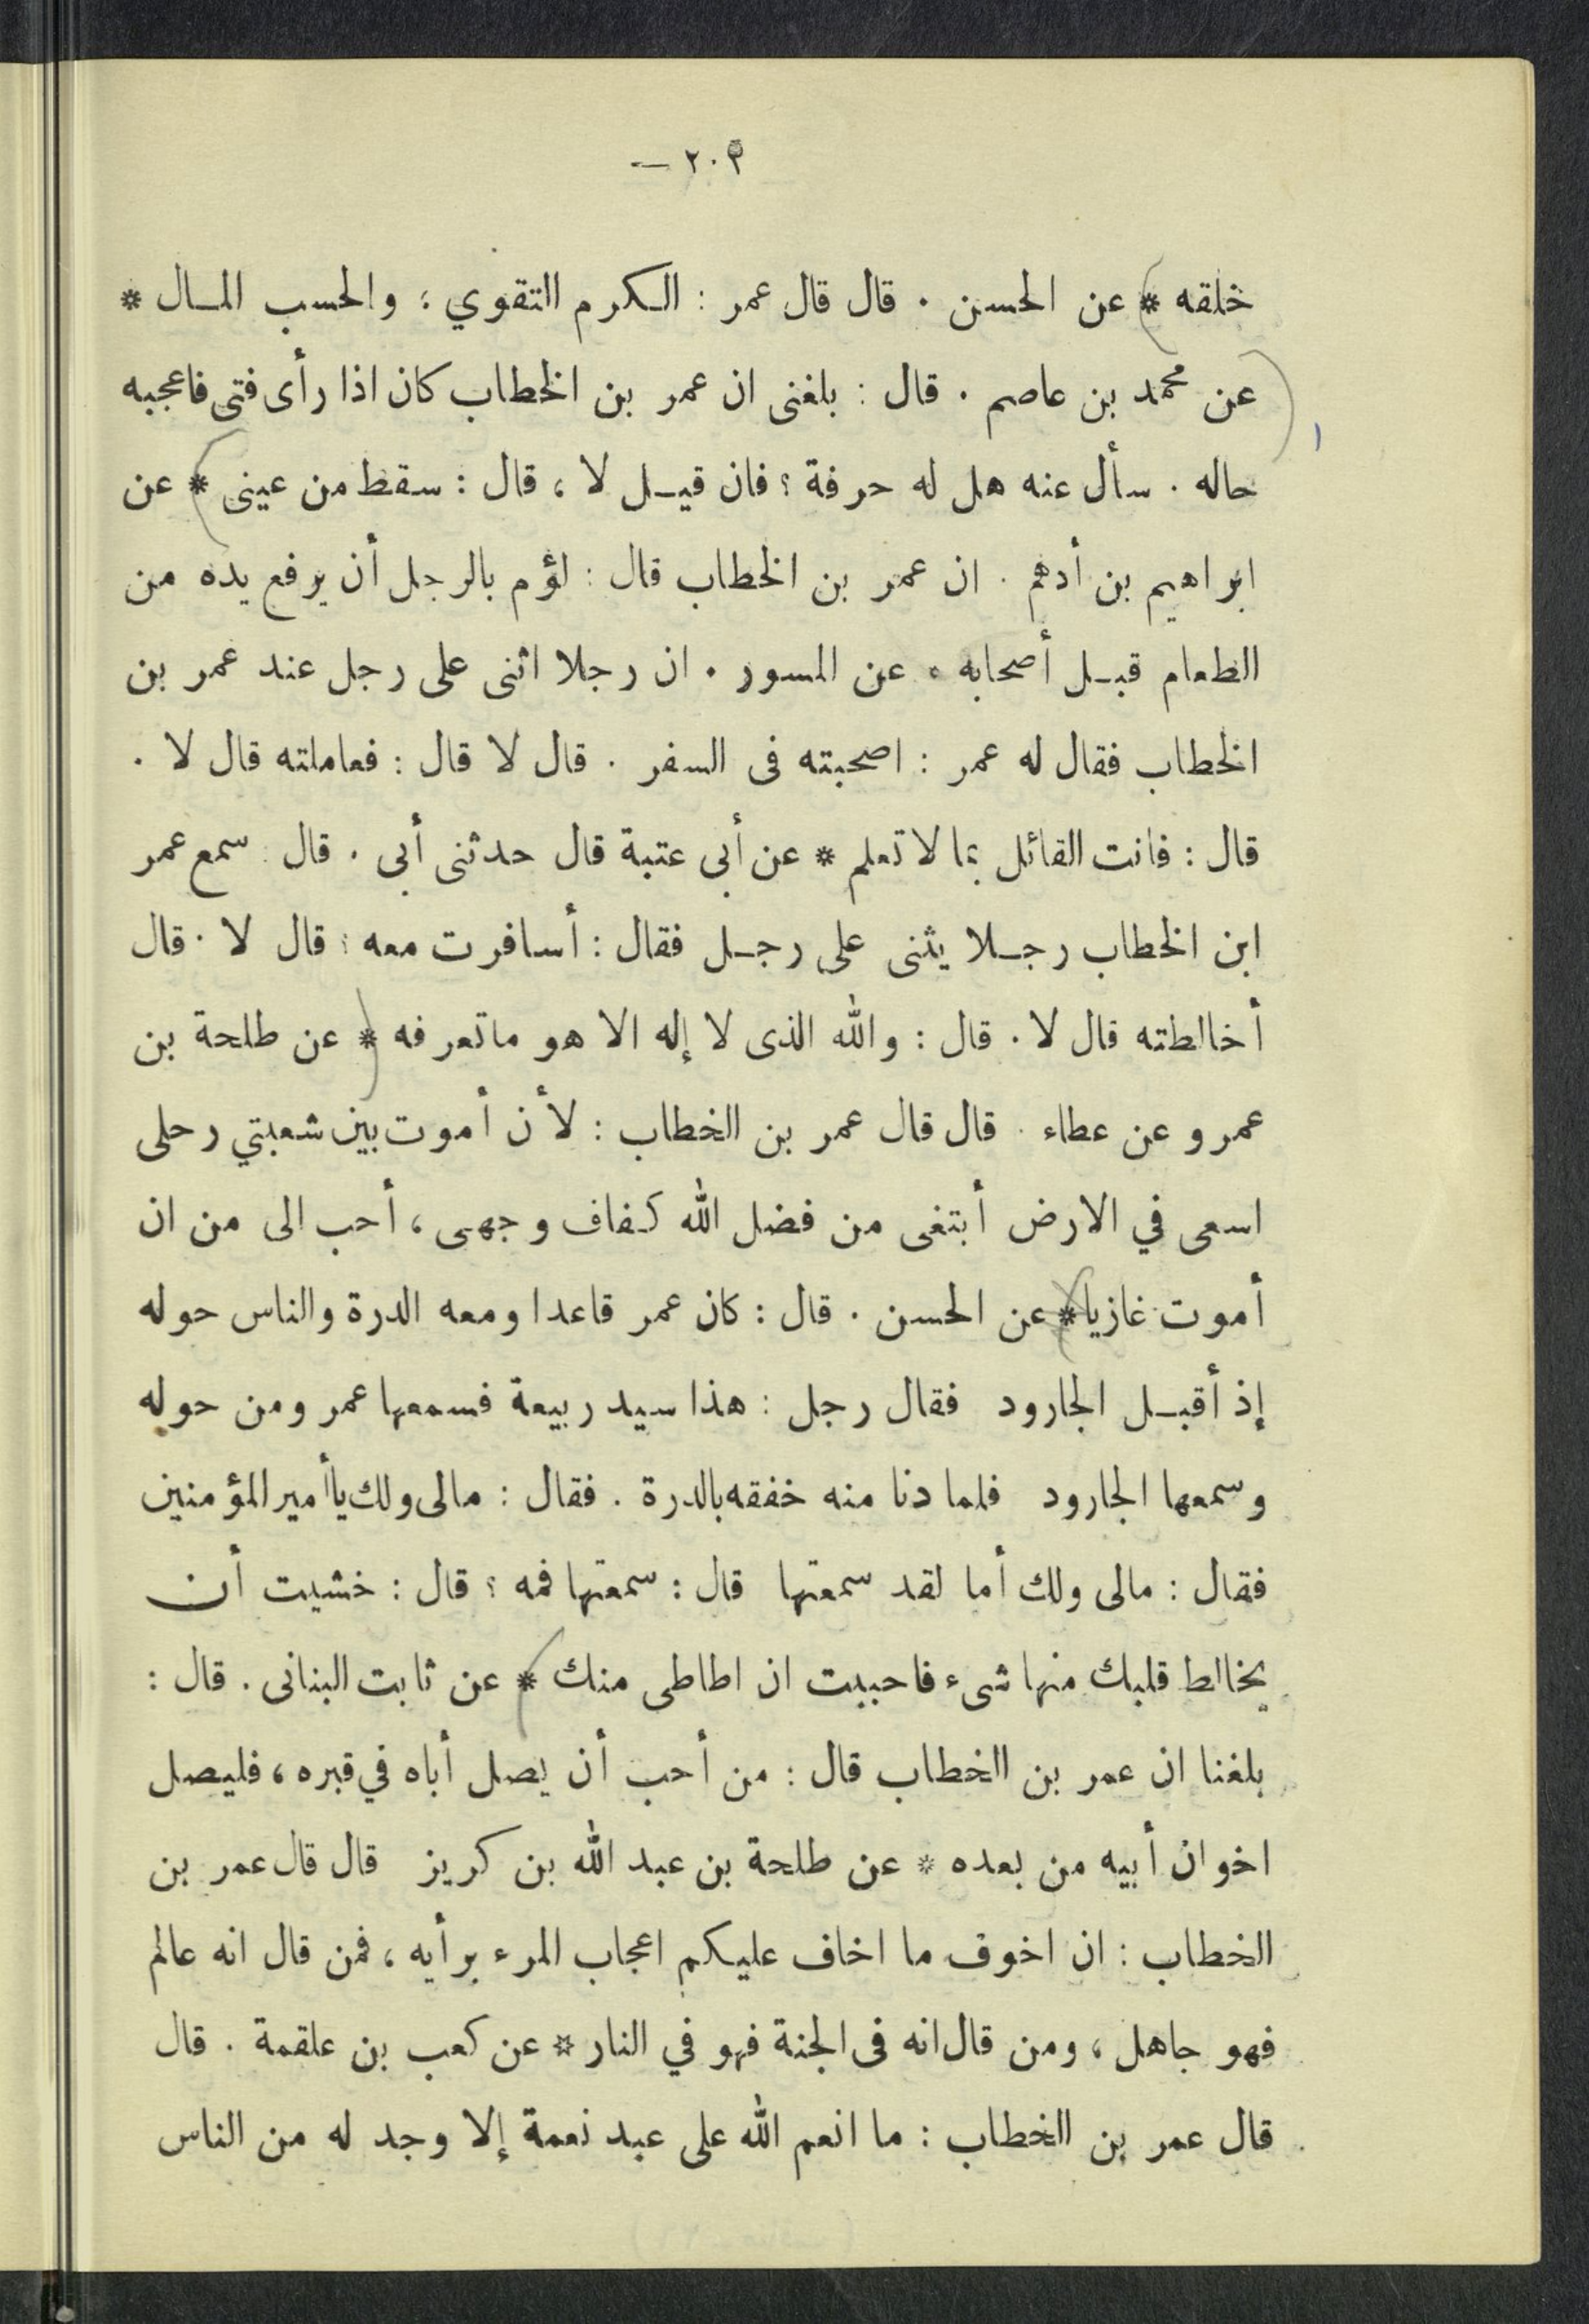 ٢٠٣ —
خلقه * عن الحسن . قال قال عمر : الكرم التقوي ؛ والحسب المال *
عن محمد بن عاصم . قال : بلغنى ان عمر بن الخطاب كان اذا رأى فتى فاعجبه
حاله . سأل عنه هل له حرفة ؟ فان قيل لا ، قال : سقط من عينى * عن
ابراهيم بن أدهم . ان عمر بن الخطاب قال : لؤم بالرجل أن يرفع يده من
الطعام قبل أصحابه . عن المسور . ان رجلا اثنى على رجل عند عمر بن
الخطاب فقال له عمر : اصحبته فى السفر . قال لا قال : فعاملته قال لا .
قال : فانت القائل بما لا تعلم * عن أبى عتبة قال حدثنى أبى . قال : سمع عمر
ابن الخطاب رجلا يثنى على رجل فقال : أسافرت معه ؛ قال لا . قال
أخالطته قال لا . قال : والله الذى لا إله الا هو ماتعرفه * عن طلحة بن
عمرو عن عطاء . قال قال عمر بن الخطاب : لأن أموت بين شعبتي رحلى
اسعى في الارض أبتغى من فضل الله كفاف وجهى ، أحب الى من ان
أموت غازيا * عن الحسن . قال : كان عمر قاعدا ومعه الدرة والناس حوله
إذ أقبل الجارود فقال رجل : هذا سيد ربيعة فسمعها عمر ومن حوله
وسمعها الجارود فلما دنا منه خفقه بالدرة . فقال : مالى ولك ياأمير المؤمنين
فقال : مالى ولك أما لقد سمعتها قال : سمعتها فمه ؟ قال : خشيت أن
يخالط قلبك منها شىء فاحببت ان اطاطى منك * عن ثابت البنانى . قال :
بلغنا ان عمر بن الخطاب قال : من أحب أن يصل أباه في قبره ، فليصل
اخوان أبيه من بعده * عن طلحة بن عبد الله بن كريز قال قال عمر بن
الخطاب : ان اخوف ما اخاف عليكم اعجاب المرء برأيه ، فمن قال انه عالم
فهو جاهل ، ومن قال انه فى الجنة فهو في النار * عن كعب بن علقمة . قال
قال عمر بن الخطاب : ما انعم الله على عبد نعمة إلا وجد له من الناس